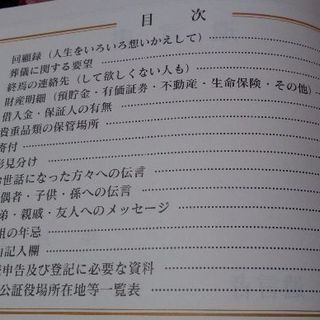 目 次
回顧録（人生をいろいろ想いかえして）
葬儀に関する要望
終焉の連絡先（して欲しくない人も）
財産明細（預貯金・有価証券・不動産・生命保険・その他）
借入金・保証人の有無
貴重品類の保管場所
寄付
形見分け
世話になった方々への伝言
偶者・子供・孫への伝言
弟・親戚・友人へのメッセージ
祖の年忌
由記入欄
申告及び登記に必要な資料
公証役場所在地等一覧表